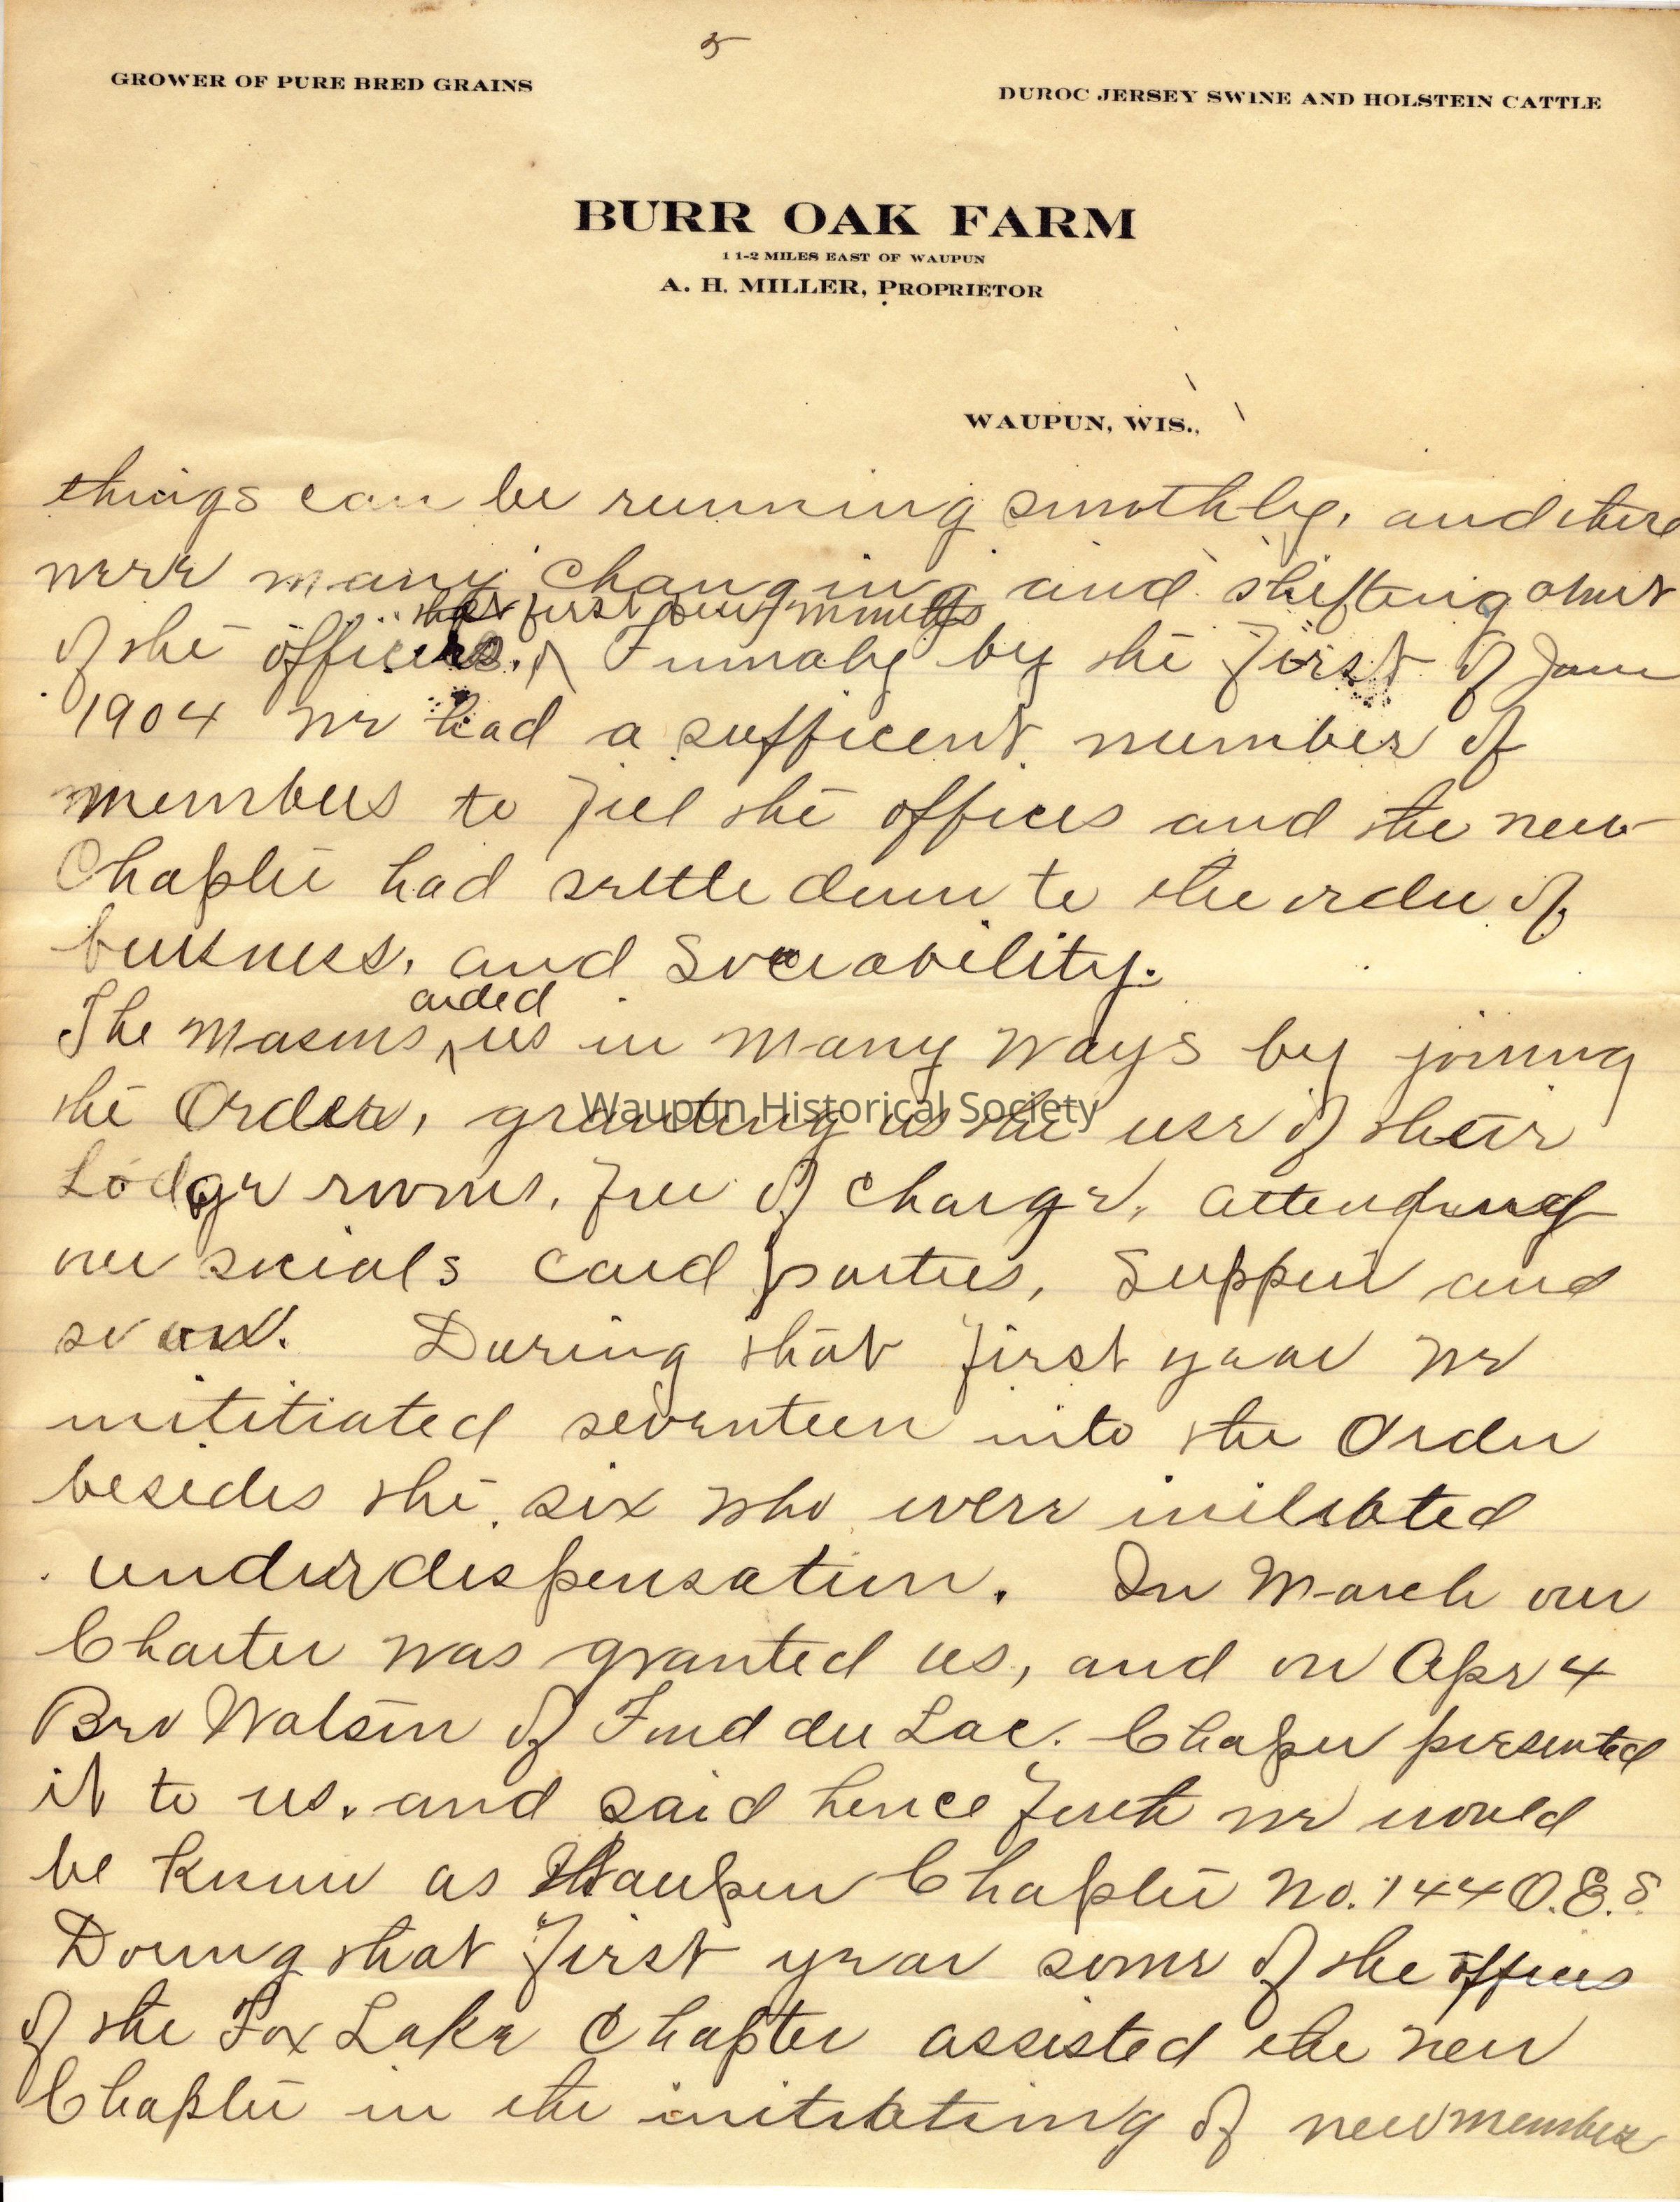 5
GROWER OF PURE BRED GRAINS
DUROC JERSEY SWINE AND HOLSTEIN CATTLE
BURR OAK FARM
1 1-2 MILES EAST OF WAUPUN
A. H. MILLER, PROPRIETOR
WAUPUN, WIS.,
things can be running smothly, and there
were many changing and shifting about
that first few months
of the officers. ^ Finnaly by the first of Jan
1904 we had a sufficent number of
members to fill the offices and the new
Chapter had settle down to the order of
buisness, and Sociability.
aided
The Masons ^ us in many ways by joining
the Order, granting us the use of their
Lodge rooms, free of charge, attending
our socials card parties, Supper and
so on. During that first year we
inititiated seventeen into the Order
besides the six who were initiated
under dispensation. In March our
Charter was granted us, and on Apr 4
Bro Watson of Fond du Lac. Chaper presented
it to us. and said hence forth we would
be known as Waupun Chapter No. 144 O.E.S.
During that first year some of the offices
of the Fox Lake Chapter assisted the new
Chapter in the initiating of new member
Waupun Historical Society